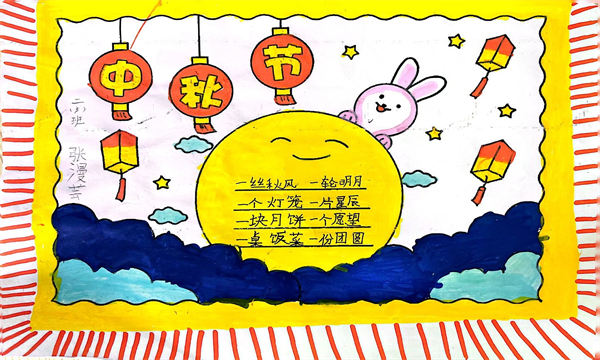 中秋节
二班
张漫芸
一丝秋风 一轮明月
一个灯笼 一片星辰
一块月饼 一个愿望
一桌饭菜 一份团圆